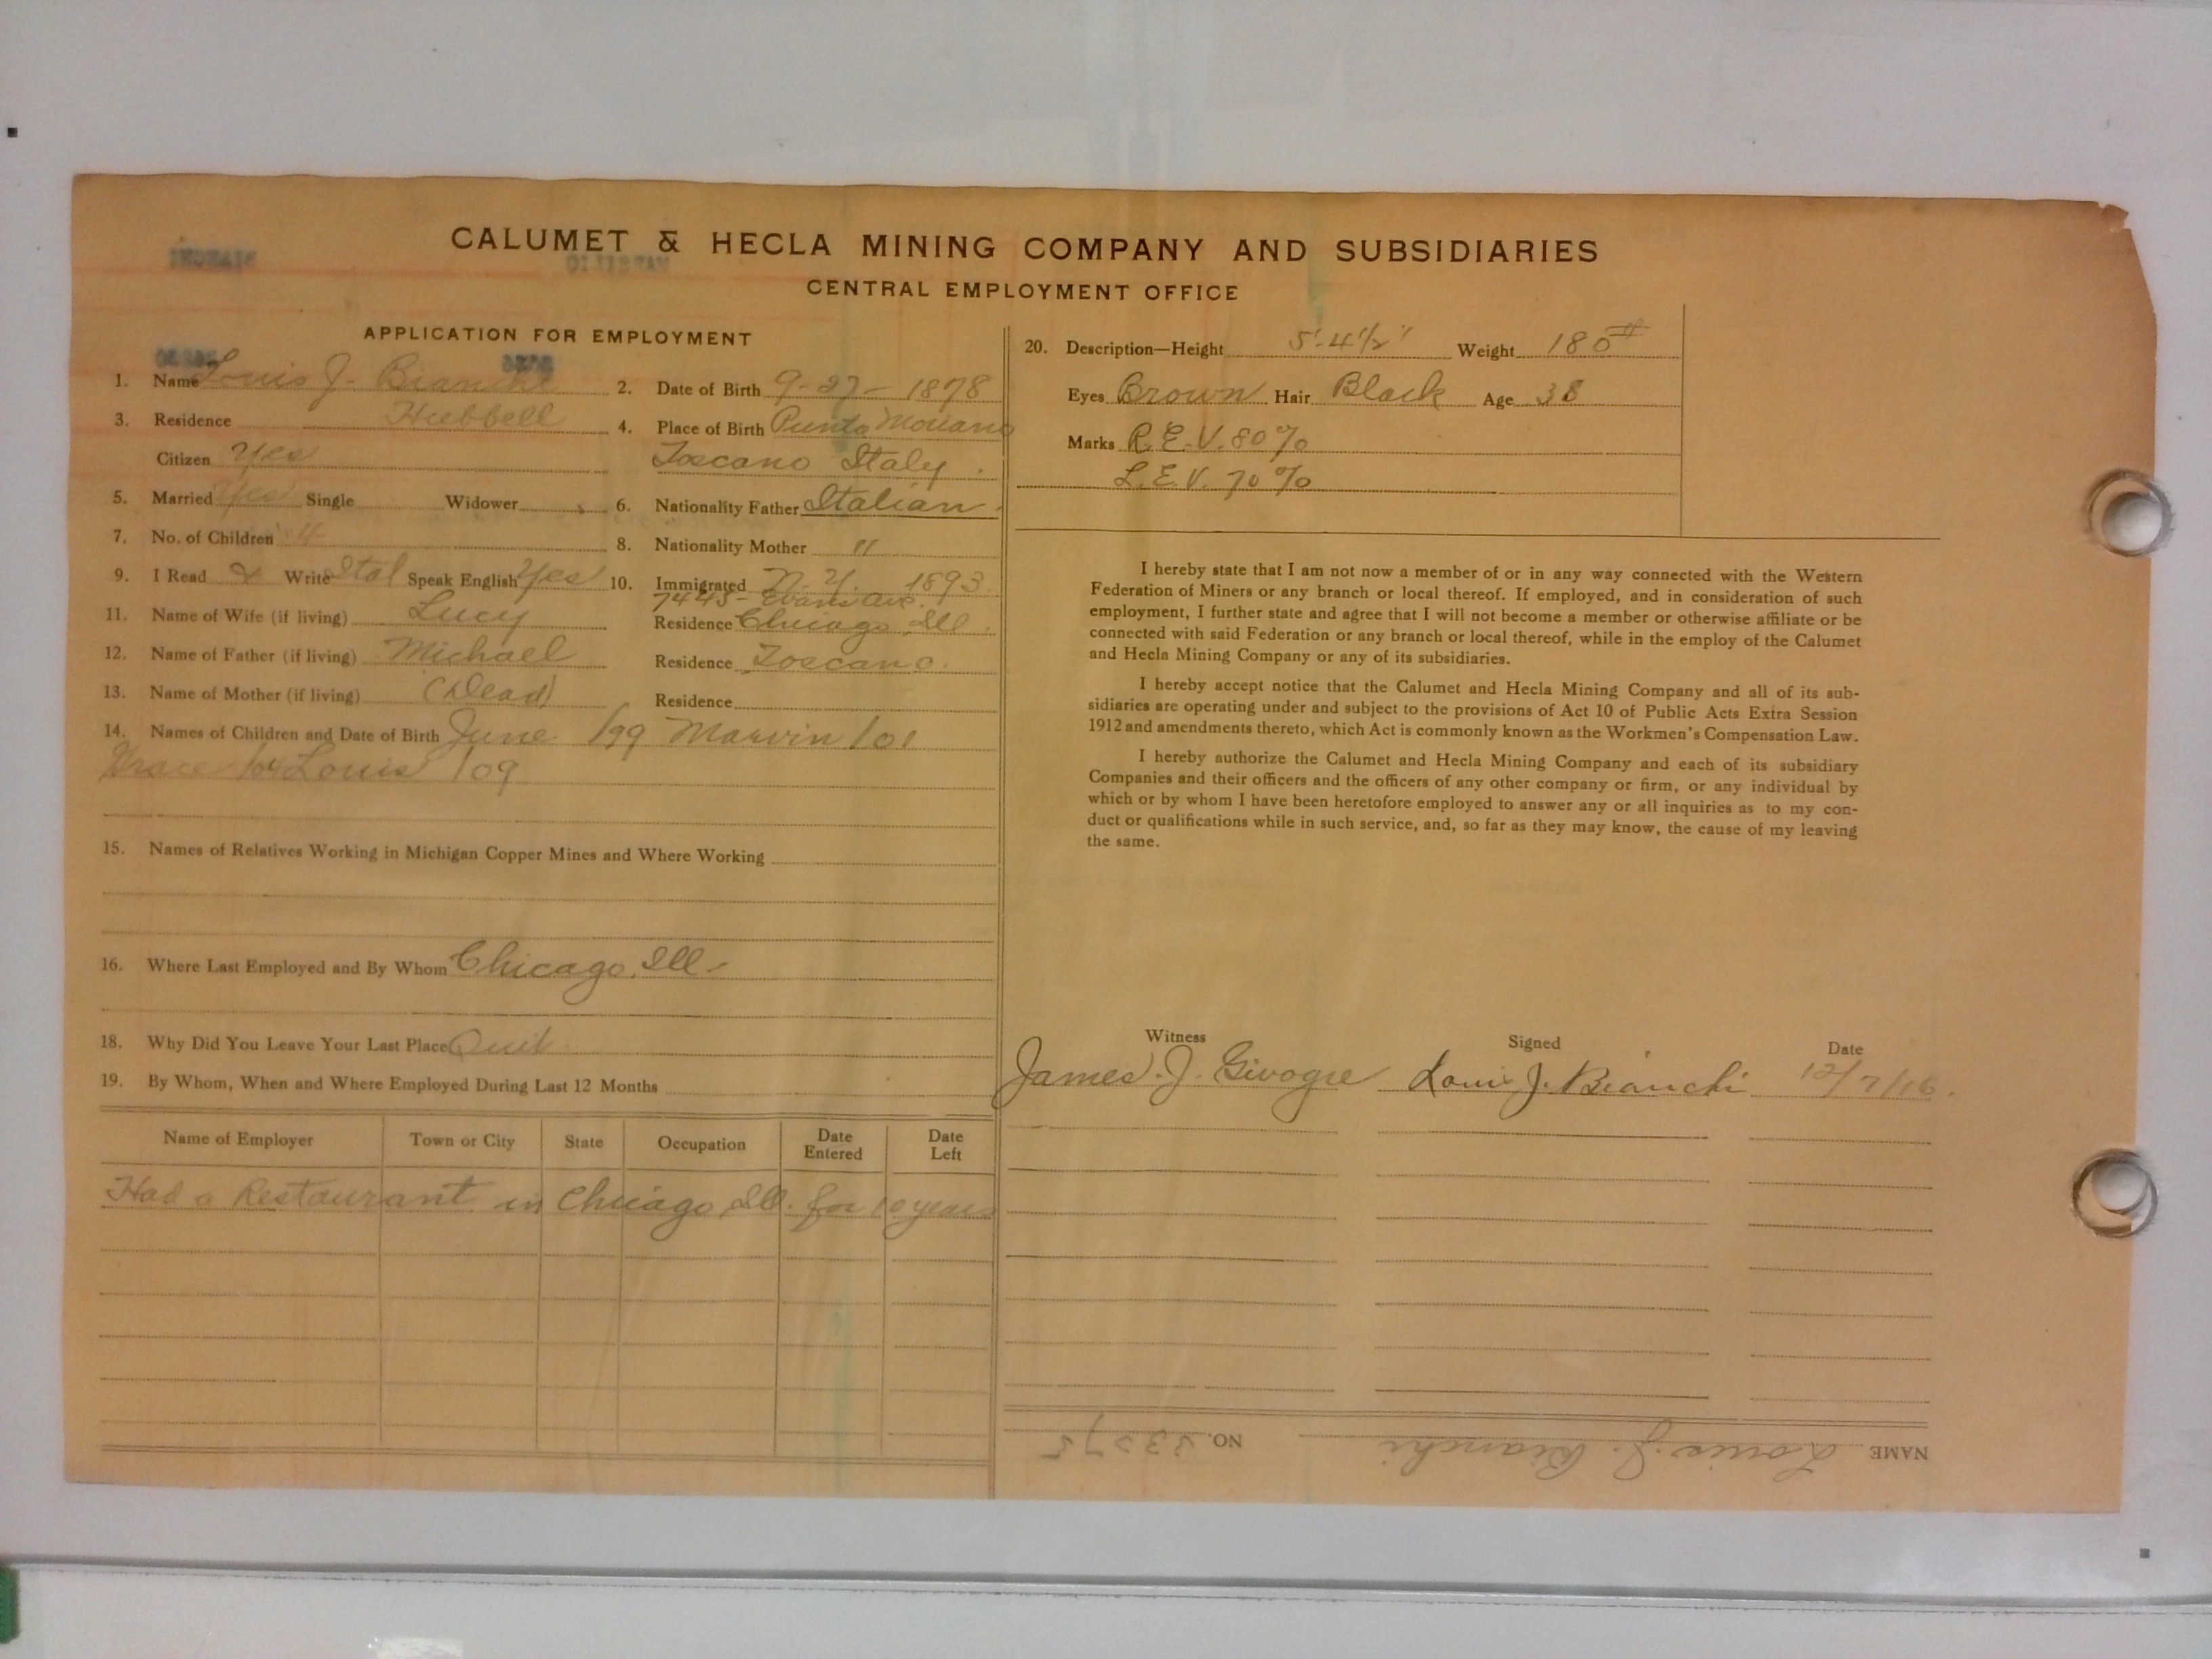 CALUMET & HECLA MINING COMPANY AND SUBSIDIARIES
CENTRAL EMPLOYMENT OFFICE
APPLICATION FOR EMPLOYMENT
1. Name Louis J. Bianchi 2. Date of Birth 9-27-1878
3. Residence Hubbell 4. Place of Birth Punta
Citizen Yes Toscano Italy.
5. Married Yes Single Widower 6. Nationality Father Italian.
7. No. of Children 4 8. Nationality Mother "
9. I Read & Write Ital Speak English Yes 10. Immigrated N.Y. 1893
7445- Evans Ave.
11. Name of Wife (if living) Lucy Residence Chicago Ill.
12. Name of Father (if living) Michael Residence Toscano.
13. Name of Mother (if living) (Dead) Residence
14. Names of Children and Date of Birth June /99 Marvin /01
Grace /04 Louis /09
15. Names of Relatives Working in Michigan Copper Mines and Where Working
16. Where Last Employed and By Whom Chicago, Ill-
18. Why Did You Leave Your Last Place Quit
19. By Whom, When and Where Employed During Last 12 Months
Name of Employer Town or City State Occupation Date Entered Date Left
Had a Restaurant in Chicago, Ill. for 10 years
20. Description—Height 5'-4½" Weight 180#
Eyes Brown Hair Black Age 38
Marks R.E.V. 80%
L.E.V. 70%
I hereby state that I am not now a member of or in any way connected with the Western
Federation of Miners or any branch or local thereof. If employed, and in consideration of such
employment, I further state and agree that I will not become a member or otherwise affiliate or be
connected with said Federation or any branch or local thereof, while in the employ of the Calumet
and Hecla Mining Company or any of its subsidiaries.
I hereby accept notice that the Calumet and Hecla Mining Company and all of its sub-
sidiaries are operating under and subject to the provisions of Act 10 of Public Acts Extra Session
1912 and amendments thereto, which Act is commonly known as the Workmen's Compensation Law.
I hereby authorize the Calumet and Hecla Mining Company and each of its subsidiary
Companies and their officers and the officers of any other company or firm, or any individual by
which or by whom I have been heretofore employed to answer any or all inquiries as to my con-
duct or qualifications while in such service, and, so far as they may know, the cause of my leaving
the same.
Witness Signed Date
James J. Louis J. Bianchi 12/7/16.
NAME Louis J. Bianchi NO.